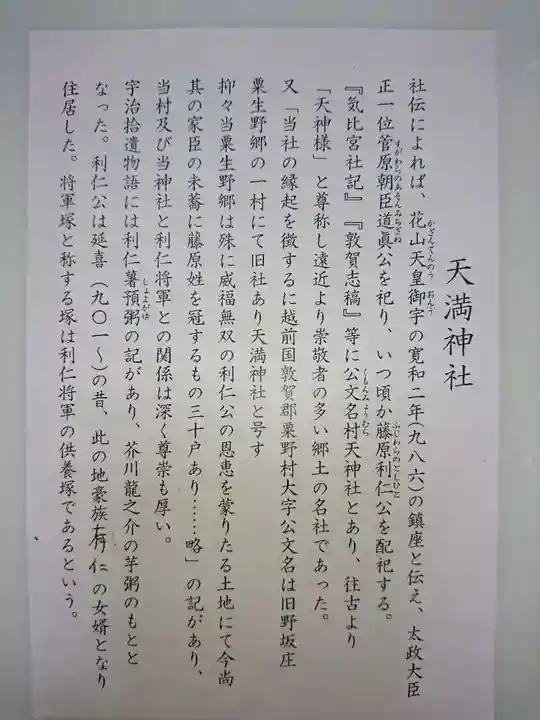 天満神社
社伝によれば、花山天皇御字の寛和二年(九八六)の鎮座と伝え、太政大臣
かざんてんのう おんう
正一位菅原朝臣道眞公を祀り、いつ頃か藤原利仁公を配祀する。
すがわらのあそんみちざね ふじわらのとしひと
『気比宮社記』『敦賀志稿』等に公文名村天神社とあり、往古より
くもんみょうむら
「天神様」と尊称し遠近より崇敬者の多い郷土の名社であった。
又「当社の縁起を徴するに越前国敦賀郡粟野村大字公文名は旧野坂庄
粟生野郷の一村にて旧社あり天満神社と号す
抑々当粟生野郷は殊に威福無双の利仁公の恩恵を蒙りたる土地にて今尚
其の家臣の末裔に藤原姓を冠するもの三十戸あり……略」の記があり、
当村及び当神社と利仁将軍との関係は深く尊崇も厚い。
宇治拾遺物語には利仁薯預粥の記があり、芥川龍之介の芋粥のもとと
しょよがゆ
なった。利仁公は延喜(九〇一~)の昔、此の地豪族有仁の女婿となり
住居した。将軍塚と称する塚は利仁将軍の供養塚であるという。